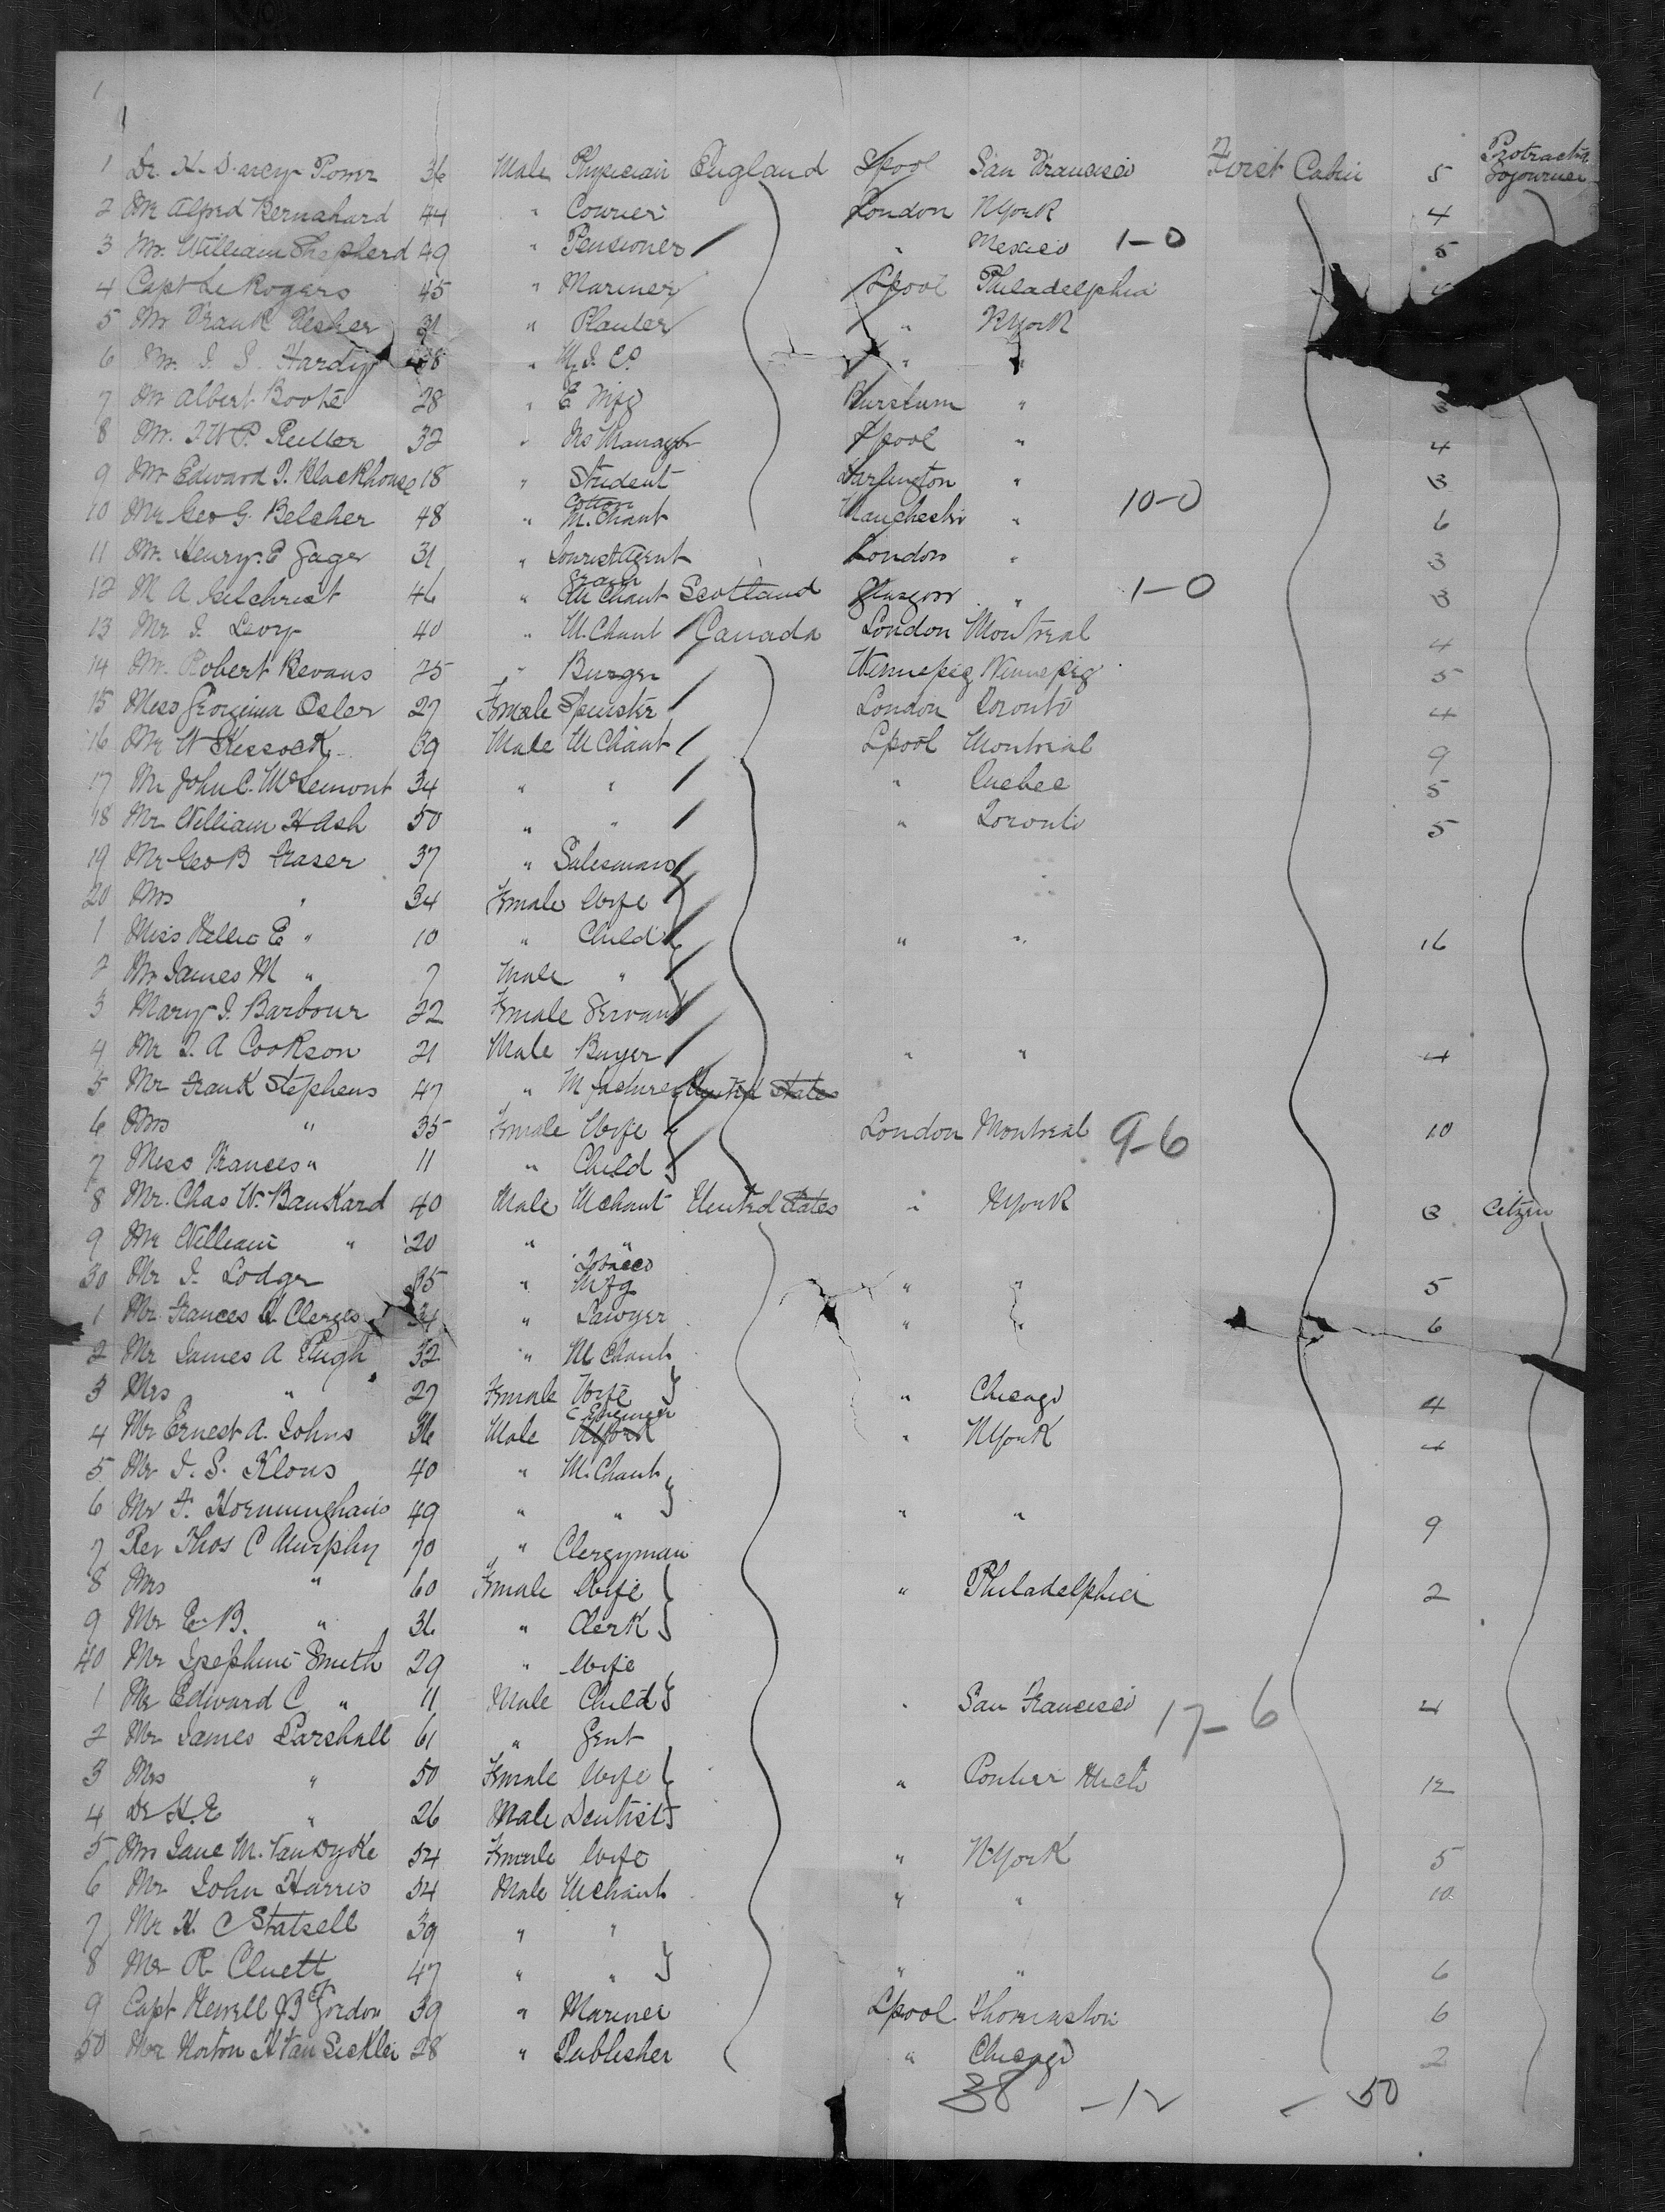 1
1 Dr. H. Darcy Power 36 Male Physician England Lpool San Francisco First Cabin 5 Protracted Sojourner
2 Mr Alfred Bernahard 44 " Courier London NYork 4
3 Mr. William Shepherd 49 " Pensioner " Mexico 1-0 5
4 Capt Le Rogers 45 " Mariner Lpool Philadelphia
5 Mr Frank Usher 31 " Planter " NYork
6 Mr. J. S. Hardy 38 " " "
7 Mr Albert Boote 28 " E Mfg Burslum "
8 Mr. J W P. 32 " Ins Manager Lpool " 4
9 Mr Edward J. Blackhouse 18 " Student Darlington " 3
10 Mr Geo G. Belcher 48 " Cotton M.Chant Manchester " 10-0 6
11 Mr. Henry. E Gage 31 " Tourist Agent London " 3
12 M A Gilchrist 46 " Grain M Chant Scotland Glasgow " 1-0 3
13 Mr J. Levy 40 " M.Chant Canada London Montreal 4
14 Mr. Robert Bevans 25 " Winnepeg Winnepeg 5
15 Miss Georgina Osler 27 Female Spinster London Toronto 4
16 Mr W Kissock 39 Male M Chant Lpool Montreal 9
17 Mr John C. McLemont 34 " " " Quebec 5
18 Mr William H Ash 50 " " " Toronto 5
19 Mr Geo B Fraser 37 " Salesman
20 Mrs " 34 Female Wife
1 Miss Nellie E " 10 " Child " " 16
2 Mr James M " 7 Male "
3 Mary J. Barbour 22 Female Servant
4 Mr J. A Cookson 21 Male Buyer " " 4
5 Mr Frank Stephens 47 " M facturer United States
6 Mrs " 35 Female Wife London Montreal 9-6 10
7 Miss Frances " 11 " Child
8 Mr. Chas W. Bankard 40 Male Mchant United States " NYork 3 Citzen
9 Mr William " 20 " "
30 Mr J. Lodge 35 " Tobacco Mfg " " 5
1 Mr. Frances H. Clergue 34 " Lawyer " " 6
2 Mr James A Pugh 32 " M Chant
3 Mrs " 27 Female Wife " Chicago 4
4 Mr Ernest A. Johns 36 Male C Engineer NYork " NYork 4
5 Mr J. S. Klous 40 " M.Chant
6 Mr F. Horninghaus 49 " " " " 9
7 Rev Thos C Murphy 70 " Clergyman
8 Mrs " 60 Female Wife " Philadelphia 2
9 Mr E B. " 36 " Clerk
40 Mr Josephine Smith 29 " Wife
1 Mr Edward C " 11 Male Child " San Francisco 17-6 4
2 Mr James Parshall 61 " Gent
3 Mrs " 50 Female Wife " Pontiac Mich 12
4 Dr H. E " 26 Male Dentist
5 Mrs Jane M. VanDyke 54 Female Wife " NYork 5
6 Mr John Harris 54 Male Mchant " " 10
7 Mr H. C Statzell 39 " "
8 Mr R. Cluett 47 " " " " 6
9 Capt Newell B Jordon 39 " Mariner Lpool Thomaston 6
50 Mr Norton H Van Sicklen 28 " Publisher " Chicago 2
38 -12 - 50